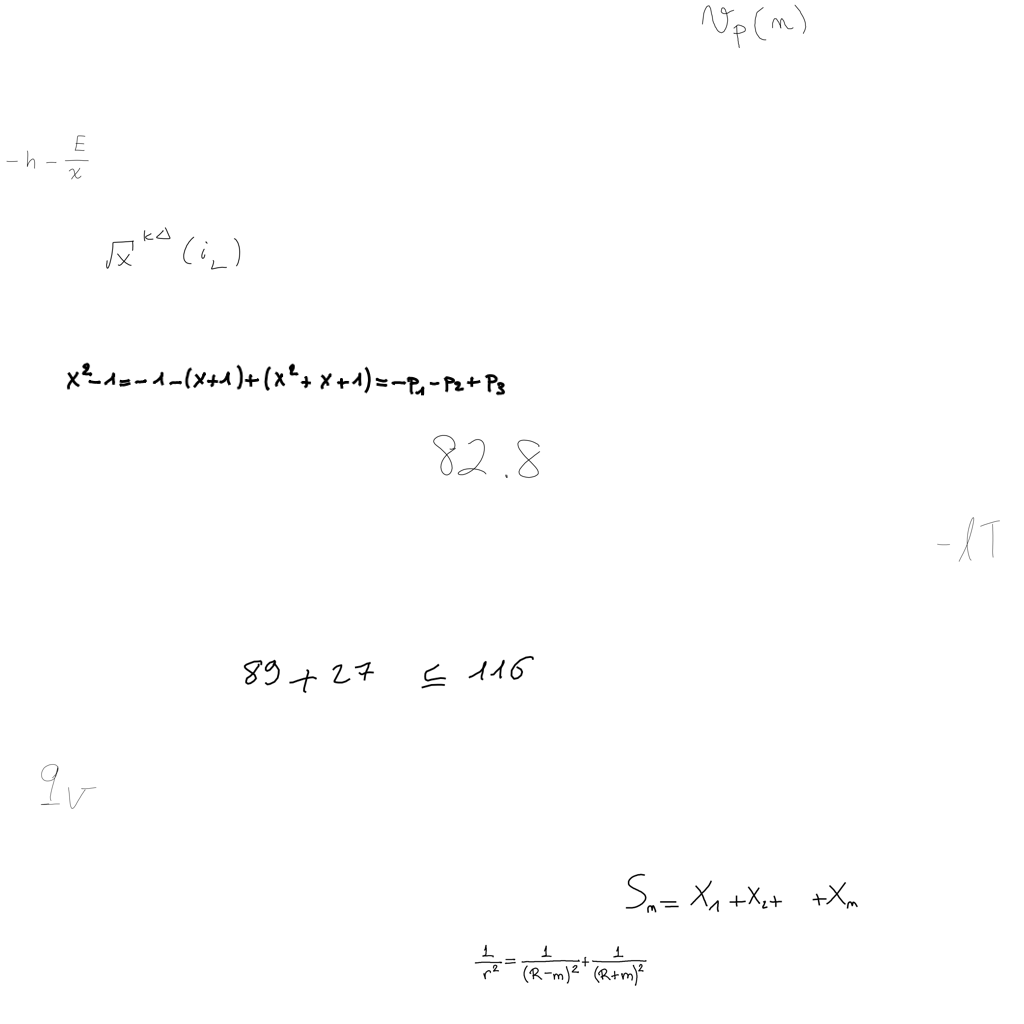 𝒱ₚ(n)
-h-E/x
√x^{kΔ}(i_L)
x²-1=-1-(x+1)+(x²+x+1)=-p₁-p₂+p₃
82.8
-lT
89+27 ≤ 116
q_v
Sₙ= X₁+X₂+ +Xₙ
1/r²=1/(R-m)²+1/(R+m)²